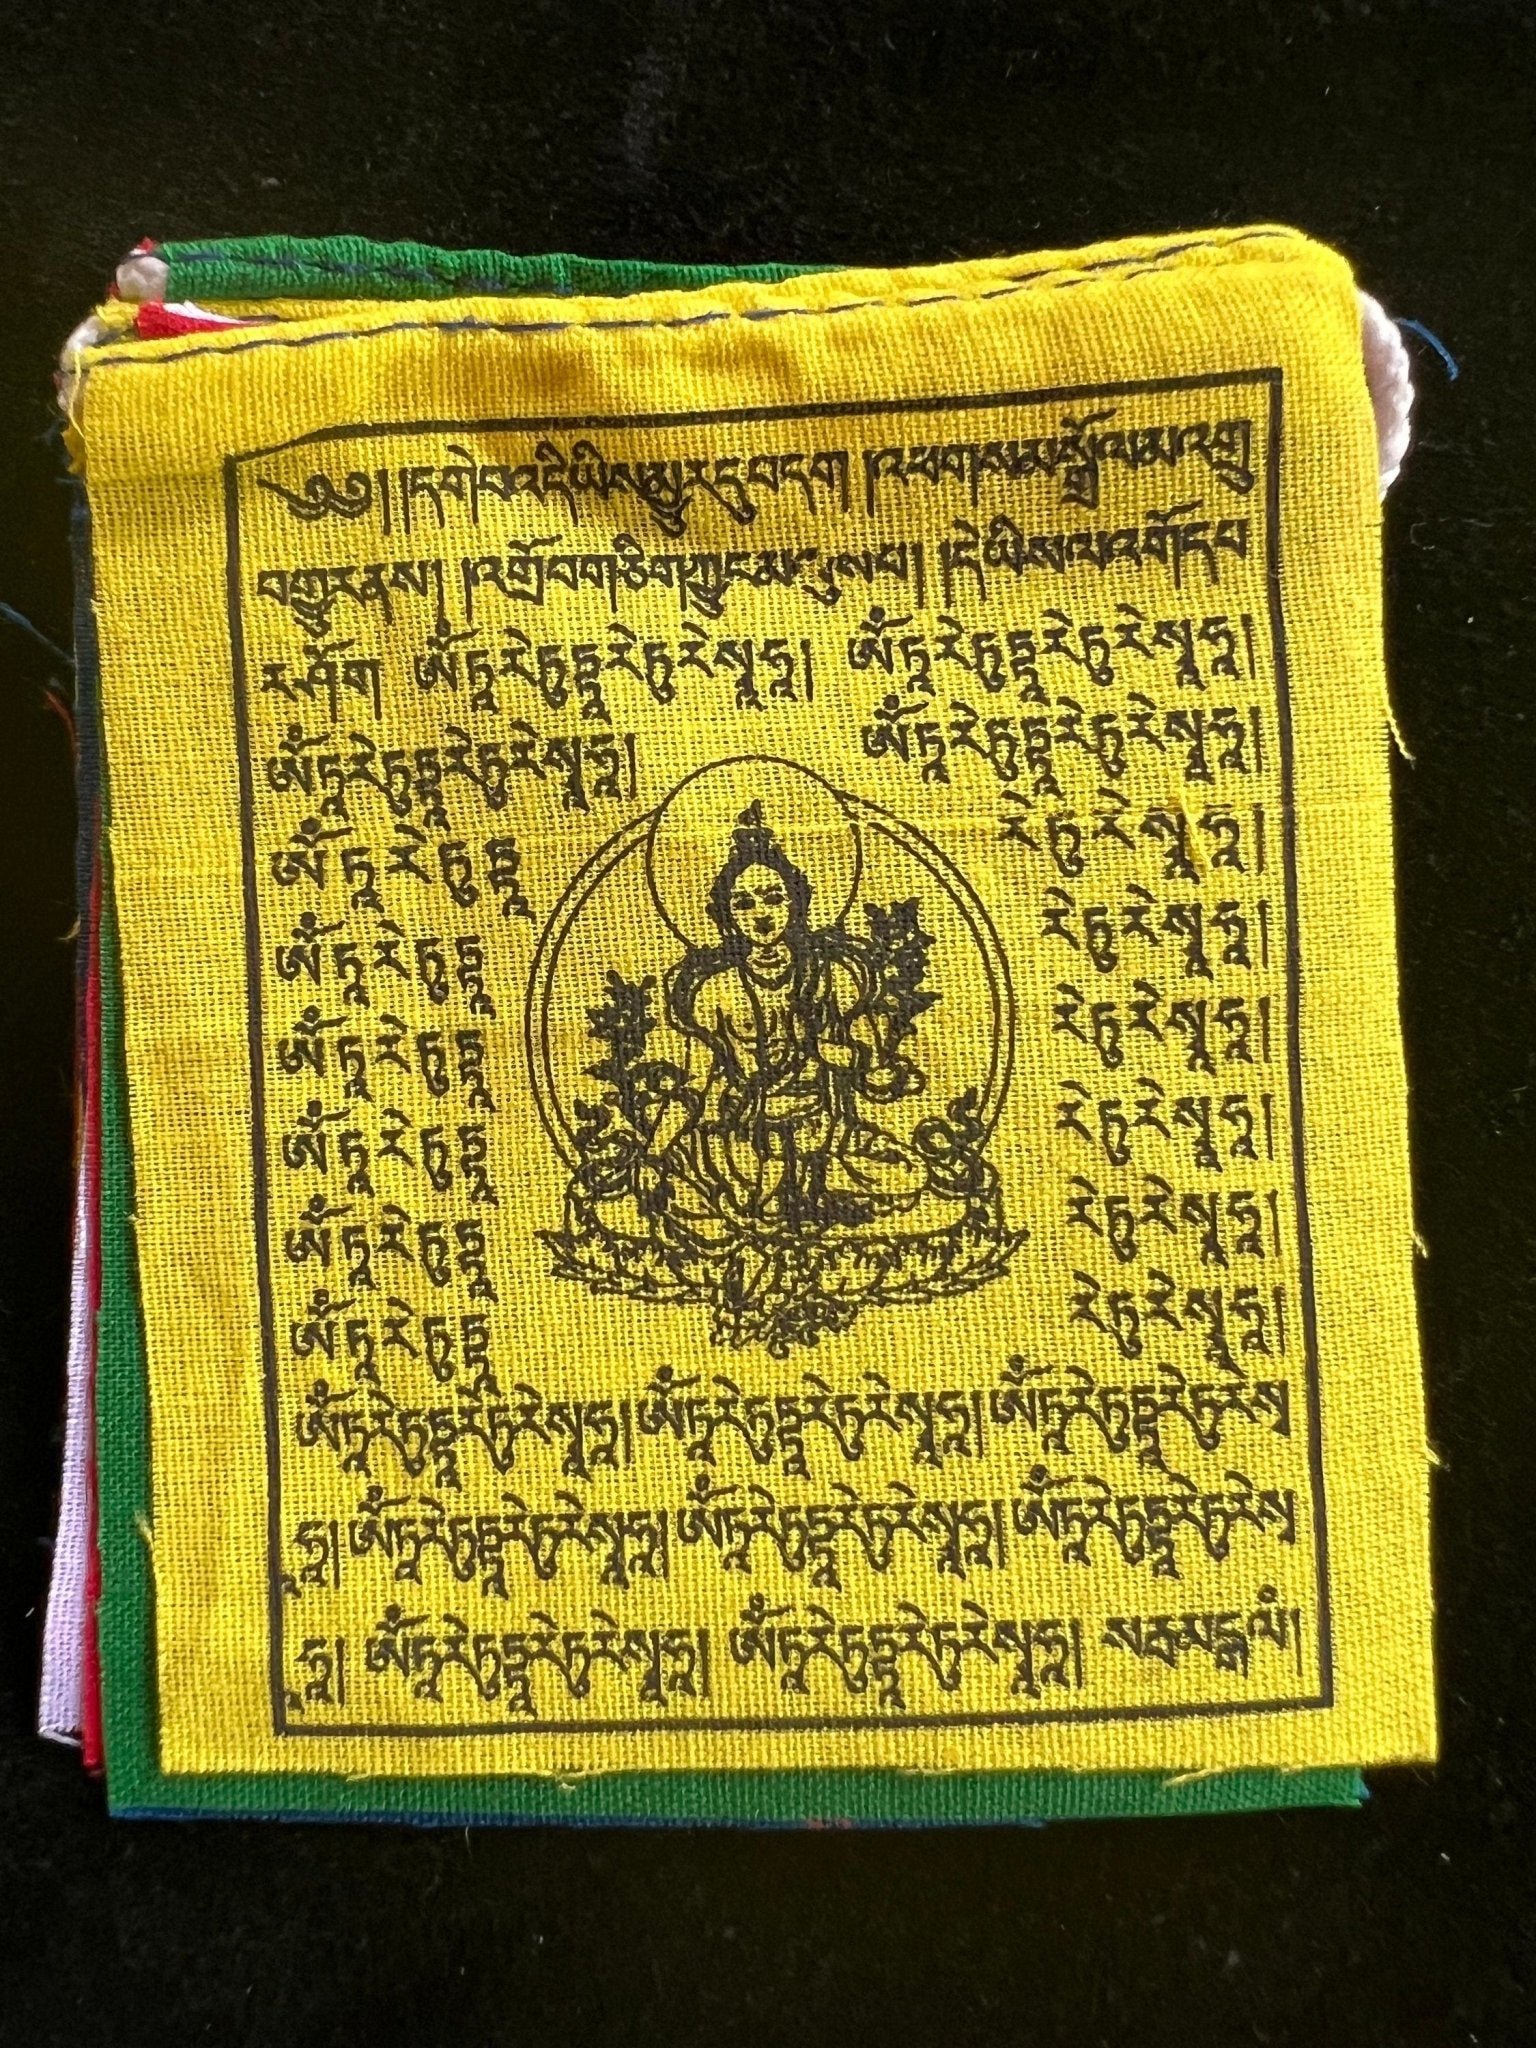 ༄༅། །དགེ་བ་འདི་ཡིས་མྱུར་དུ་བདག །འཕགས་མ་སྒྲོལ་མ་འགྲུ
བ་གྱུར་ནས། །འགྲོ་བ་གཅིག་ཀྱང་མ་ལུས་པ། །དེ་ཡིས་ལ་འགོད་པ
ར་ཤོག ཨོཾ་ཏཱ་རེ་ཏུཏྟཱ་རེ་ཏུ་རེ་སྭཱ་ཧཱ། ཨོཾ་ཏཱ་རེ་ཏུཏྟཱ་རེ་ཏུ་རེ་སྭཱ་ཧཱ།
ཨོཾ་ཏཱ་རེ་ཏུཏྟཱ་རེ་ཏུ་རེ་སྭཱ་ཧཱ། ཨོཾ་ཏཱ་རེ་ཏུཏྟཱ་རེ་ཏུ་རེ་སྭཱ་ཧཱ།
ཨོཾ་ཏཱ་རེ་ཏུཏྟཱ རེ་ཏུ་རེ་སྭཱ་ཧཱ།
ཨོཾ་ཏཱ་རེ་ཏུཏྟཱ རེ་ཏུ་རེ་སྭཱ་ཧཱ།
ཨོཾ་ཏཱ་རེ་ཏུཏྟཱ རེ་ཏུ་རེ་སྭཱ་ཧཱ།
ཨོཾ་ཏཱ་རེ་ཏུཏྟཱ རེ་ཏུ་རེ་སྭཱ་ཧཱ།
ཨོཾ་ཏཱ་རེ་ཏུཏྟཱ རེ་ཏུ་རེ་སྭཱ་ཧཱ།
ཨོཾ་ཏཱ་རེ་ཏུཏྟཱ རེ་ཏུ་རེ་སྭཱ་ཧཱ།
ཨོཾ་ཏཱ་རེ་ཏུཏྟཱ་རེ་ཏུ་རེ་སྭཱ་ཧཱ། ཨོཾ་ཏཱ་རེ་ཏུཏྟཱ་རེ་ཏུ་རེ་སྭཱ་ཧཱ། ཨོཾ་ཏཱ་རེ་ཏུཏྟཱ་རེ་ཏུ་རེ་སྭ
ཧཱ། ཨོཾ་ཏཱ་རེ་ཏུཏྟཱ་རེ་ཏུ་རེ་སྭཱ་ཧཱ། ཨོཾ་ཏཱ་རེ་ཏུཏྟཱ་རེ་ཏུ་རེ་སྭཱ་ཧཱ། ཨོཾ་ཏཱ་རེ་ཏུཏྟཱ་རེ་ཏུ་རེ་སྭ
ཧཱ། ཨོཾ་ཏཱ་རེ་ཏུཏྟཱ་རེ་ཏུ་རེ་སྭཱ་ཧཱ། ཨོཾ་ཏཱ་རེ་ཏུཏྟཱ་རེ་ཏུ་རེ་སྭཱ་ཧཱ། སརྦ་མངྒ་ལཾ།